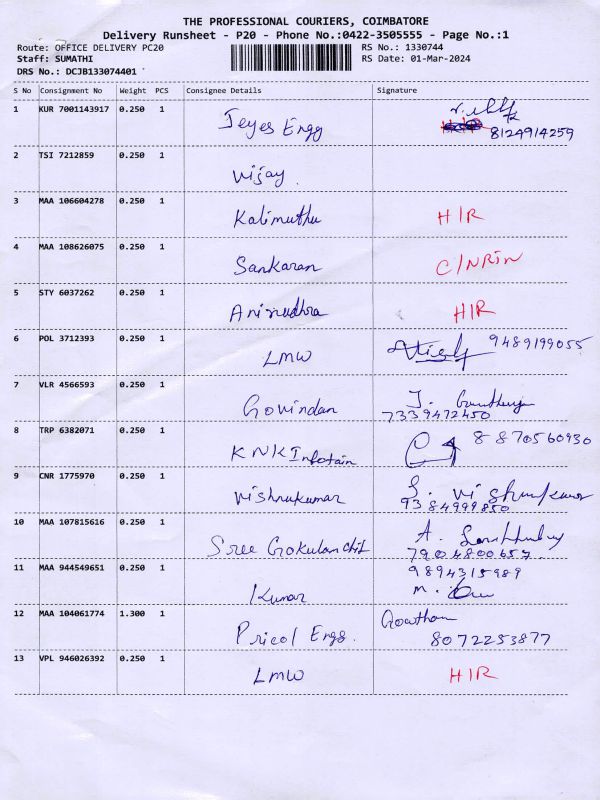 THE PROFESSIONAL COURIERS, COIMBATORE
Delivery Runsheet - P20 - Phone No.:0422-3505555 - Page No.:1
Route: OFFICE DELIVERY PC20 RS No.: 1330744
Staff: SUMATHI RS Date: 01-Mar-2024
DRS No.: DCJB133074401
S No Consignment No Weight PCS Consignee Details Signature
1 KUR 7001143917 0.250 1 Jeyes Engg 8124914259
2 TSI 7212859 0.250 1 Vijay
3 MAA 106604278 0.250 1 Kalimuthu H/R
4 MAA 108626075 0.250 1 Sankaran C/NRIN
5 STY 6037262 0.250 1 Anirudhra H/R
6 POL 3712393 0.250 1 LMW 9489199055
7 VLR 4566593 0.250 1 Govindan J.
7339472450
8 TRP 6382071 0.250 1 KNK Infotain 8870560930
9 CNR 1775970 0.250 1 Vishnukumar S. Vishnukumar
9384999850
10 MAA 107815616 0.250 1 Sree Gokulan Chit A.
7904800657
11 MAA 944549651 0.250 1 Kumar 9894315989
M.
12 MAA 104061774 1.300 1 Pricol Engg. Gowtham
8072253877
13 VPL 946026392 0.250 1 LMW H/R